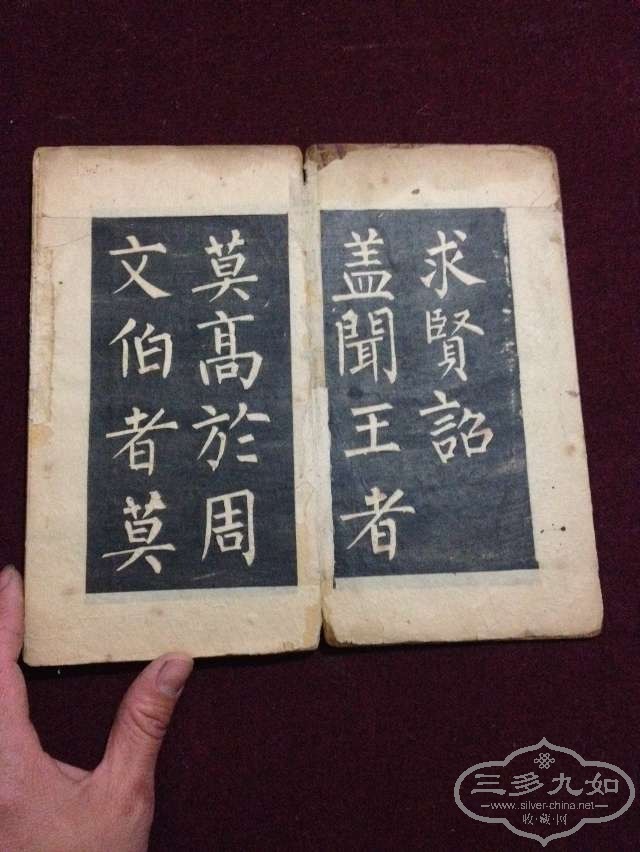 求賢詔
盖聞王者
莫髙於周
文伯者莫
三多九如
www.silver-china.net
收·藏·网